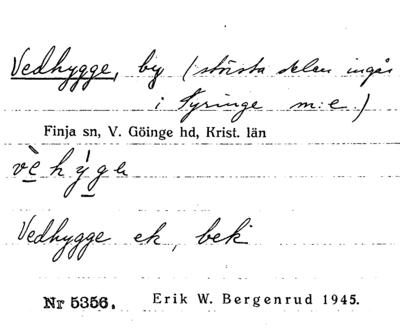 Vedhygge, by (största delen ingår
i Tyringe m:e.)
Finja sn, V. Göinge hd, Krist. län
Vedhygge ek, bek
Nr 5356. Erik W. Bergenrud 1945.